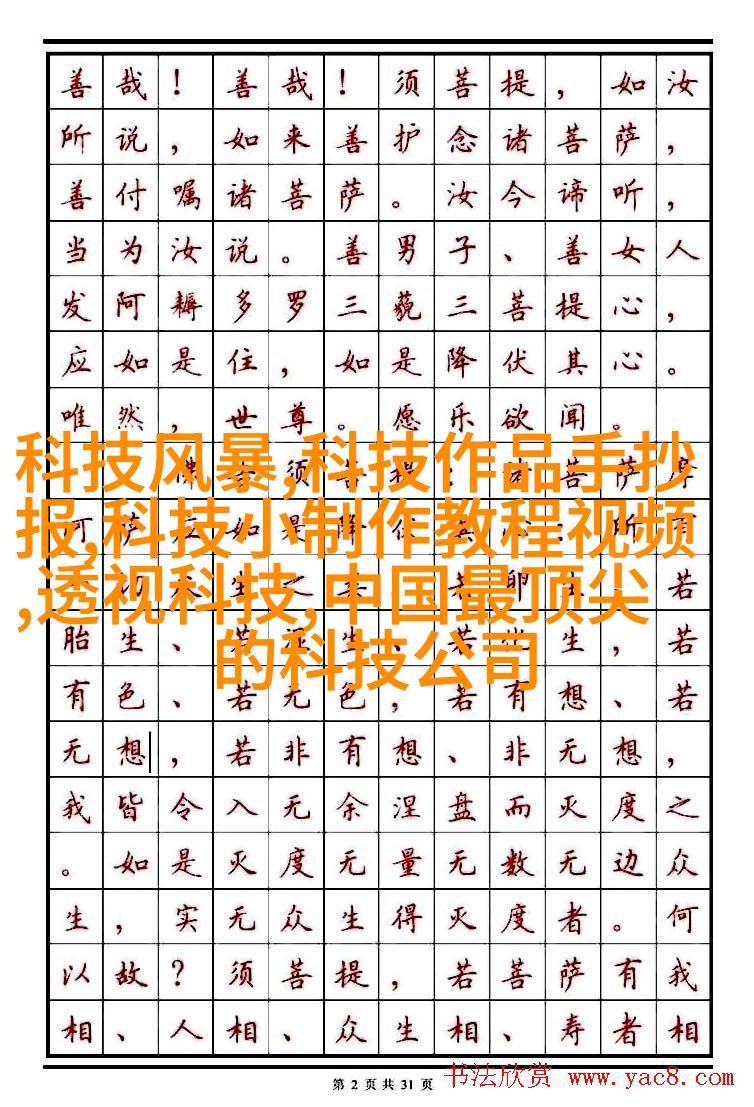 善哉！善哉！须菩提，如汝
所说，如来善护念诸菩萨，
善付嘱诸菩萨。汝今谛听，
当为汝说。善男子、善女人
发阿耨多罗三藐三菩提心，
应如是住，如是降伏其心。
唯然，世尊。愿乐欲闻。
科技风暴,科技作品手抄
报,科技小制作教程视频
,透视科技,中国最顶尖
的科技公司
佛 须菩提：诸菩萨摩
萨应如是降伏其心：所有
生之 若卵生、若
胎生、若湿生、若化生，若
有色、若无色，若有想、若
无想，若非有想、非无想，
我皆令入无余涅盘而灭度之
。如是灭度无量无数无边众
生，实无众生得灭度者。何
以故？须菩提，若菩萨有我
相、人相、众生相、寿者相
第 2 页共 31 页
书法欣赏 www.yac8.com